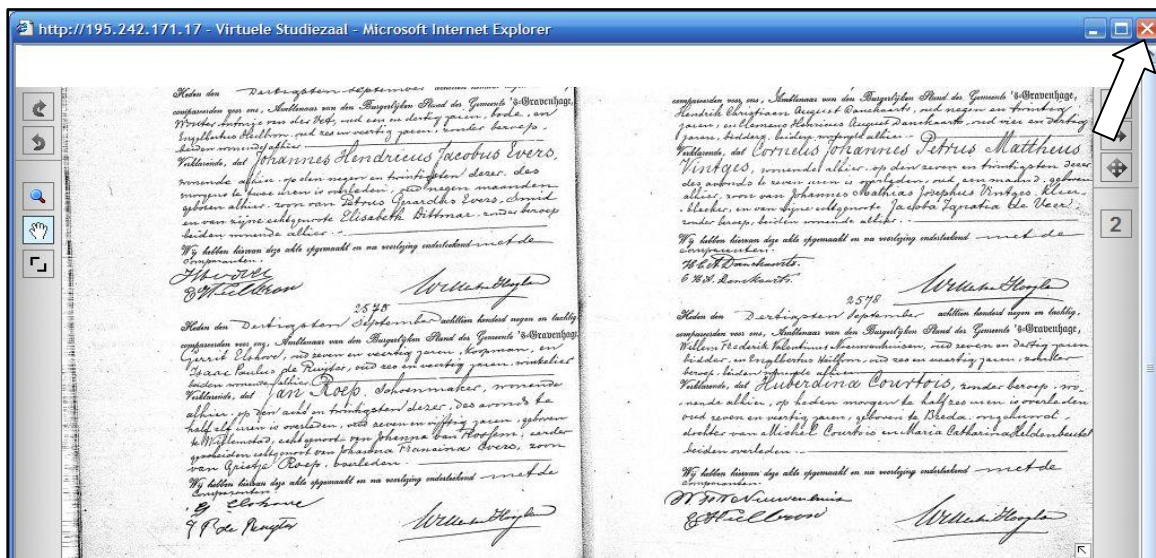 http://195.242.171.17 - Virtuele Studiezaal - Microsoft Internet Explorer
Heden den Dertigsten September
compareerden voor ons, Ambtenaar van den Burgerlijken Stand der Gemeente 's-Gravenhage,
Wouter Antonije van der Vet, oud een en dertig jaren, bode, en
Engelbertus Heilbron, oud zes en veertig jaren, zonder beroep,
beiden wonende alhier
Verklarende, dat Johannes Hendricus Jacobus Evers,
wonende alhier, op den negen en twintigsten dezer, des
morgens te twee uren is overleden, oud negen maanden
geboren alhier, zoon van Petrus Gerardus Evers, smid
en van zijne echtgenoote Elisabeth Dittmar, zonder beroep
beiden wonende alhier.
Wij hebben hiervan deze akte opgemaakt en na voorlezing onderteekend met de
Comparanten.
2578
Heden den Dertigsten September achttien honderd negen en tachtig,
compareerden voor ons, Ambtenaar van den Burgerlijken Stand der Gemeente 's-Gravenhage
Gerrit Elshove, oud zeven en veertig jaren, koopman, en
Isaac Paulus de Ruyter, oud zes en veertig jaren, winkelier
beiden wonende alhier
Verklarende, dat Jan Roep, Schoenmaker, wonende
alhier, op den acht en twintigsten dezer, des avonds te
half elf uren is overleden, oud zeven en vijftig jaren, geboren
te Willemstad, echtgenoot van Johanna van, eerder
gescheiden echtgenoot van Johanna Francina Evers, zoon
van Grietje Roep, overleden.
Wij hebben hiervan deze akte opgemaakt en na voorlezing onderteekend met de
Comparanten.
G Elshove
I P de Ruyter
compareerden voor ons, Ambtenaar van den Burgerlijken Stand der Gemeente 's-Gravenhage,
Hendrik Christiaan August Danckaarts, oud negen en twintig
jaren, en Clemens Henricus August Danckaarts, oud vier en dertig
jaren, beiden alhier
Verklarende, dat Cornelis Johannes Petrus Mattheus
Vintges, wonende alhier, op den zeven en twintigsten dezer
des avonds te zeven uren is overleden, oud een maand, geboren
alhier, zoon van Johannes Mathias Josephus Vintges, kleer-
bleeker, en van zijne echtgenoote Jacoba Ignatia de Veer,
zonder beroep, beiden wonende alhier.
Wij hebben hiervan deze akte opgemaakt en na voorlezing onderteekend met de
Comparanten.
2578
Heden den Dertigsten September achttien honderd negen en tachtig,
compareerden voor ons, Ambtenaar van den Burgerlijken Stand der Gemeente 's-Gravenhage,
Willem Frederik Valentinus Nieuwenhuisen, oud zeven en dertig jaren
bidder, en Engelbertus Heilbron, oud zes en veertig jaren, zonder
beroep, beiden wonende alhier
Verklarende, dat Huberdina Courtois, zonder beroep, wo-
nende alhier, op heden morgen te half zes uren is overleden
oud zeven en veertig jaren, geboren te Breda, ongehuwd,
dochter van Michel Courtois en Maria Catharina Heldenbeutel
beiden overleden.
Wij hebben hiervan deze akte opgemaakt en na voorlezing onderteekend met de
Comparanten.
2